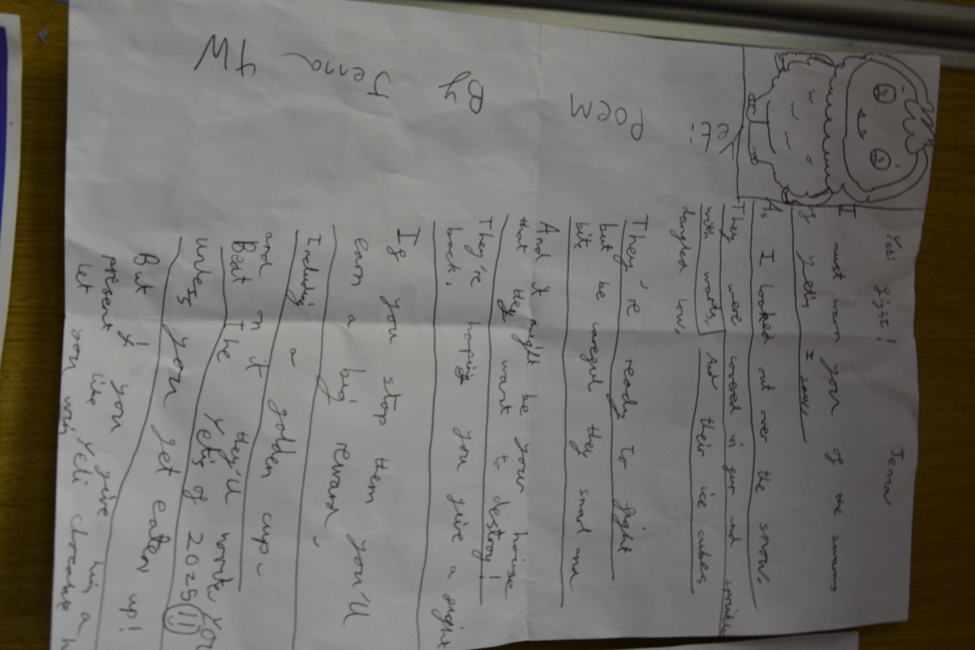 Yeti fight! Jenna
I must warn you of the swarms
of yetis I saw
As I looked out over the snow.
They were covered in fur and sprinkled
with warts, but their ice cubes
dangled low.
They're ready to fight
but be careful they snarl and
bite
And it might be your house
that they want to destroy!
They're hoping you give a fight
back.
If you stop them you'll
earn a big reward
Including a golden cup
and on it they'll write you
Beat the Yetis of 2025
unless you get eaten up!
But if you give him a
present like Yeti chocolate h
let you win
Yeti
Poem
By
Jenna
4W